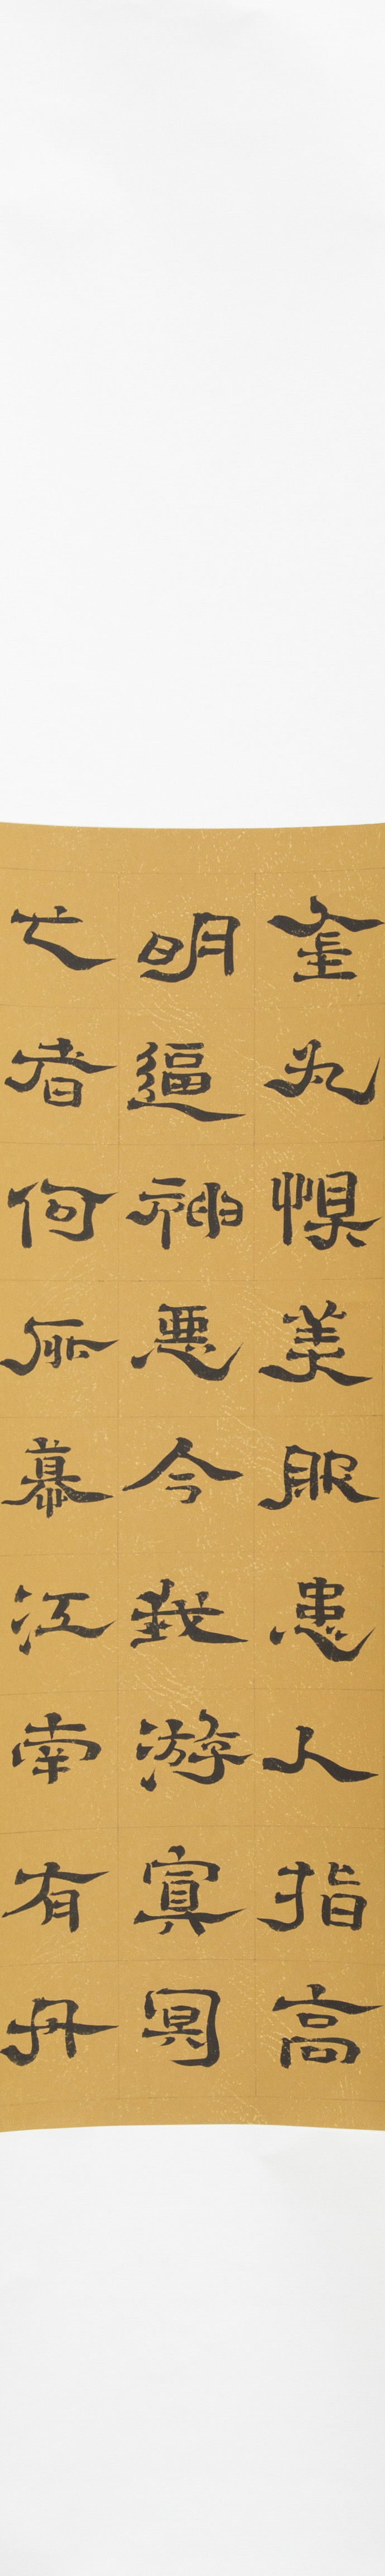 金丸惧美服患人指高
明逼神悪今我游冥冥
弋者何所慕江南有丹